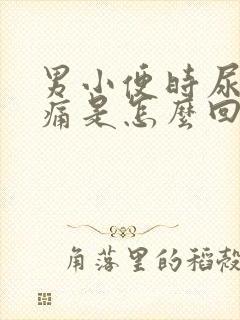 男小便时尿
痛是怎麼回
角落里的稻殼